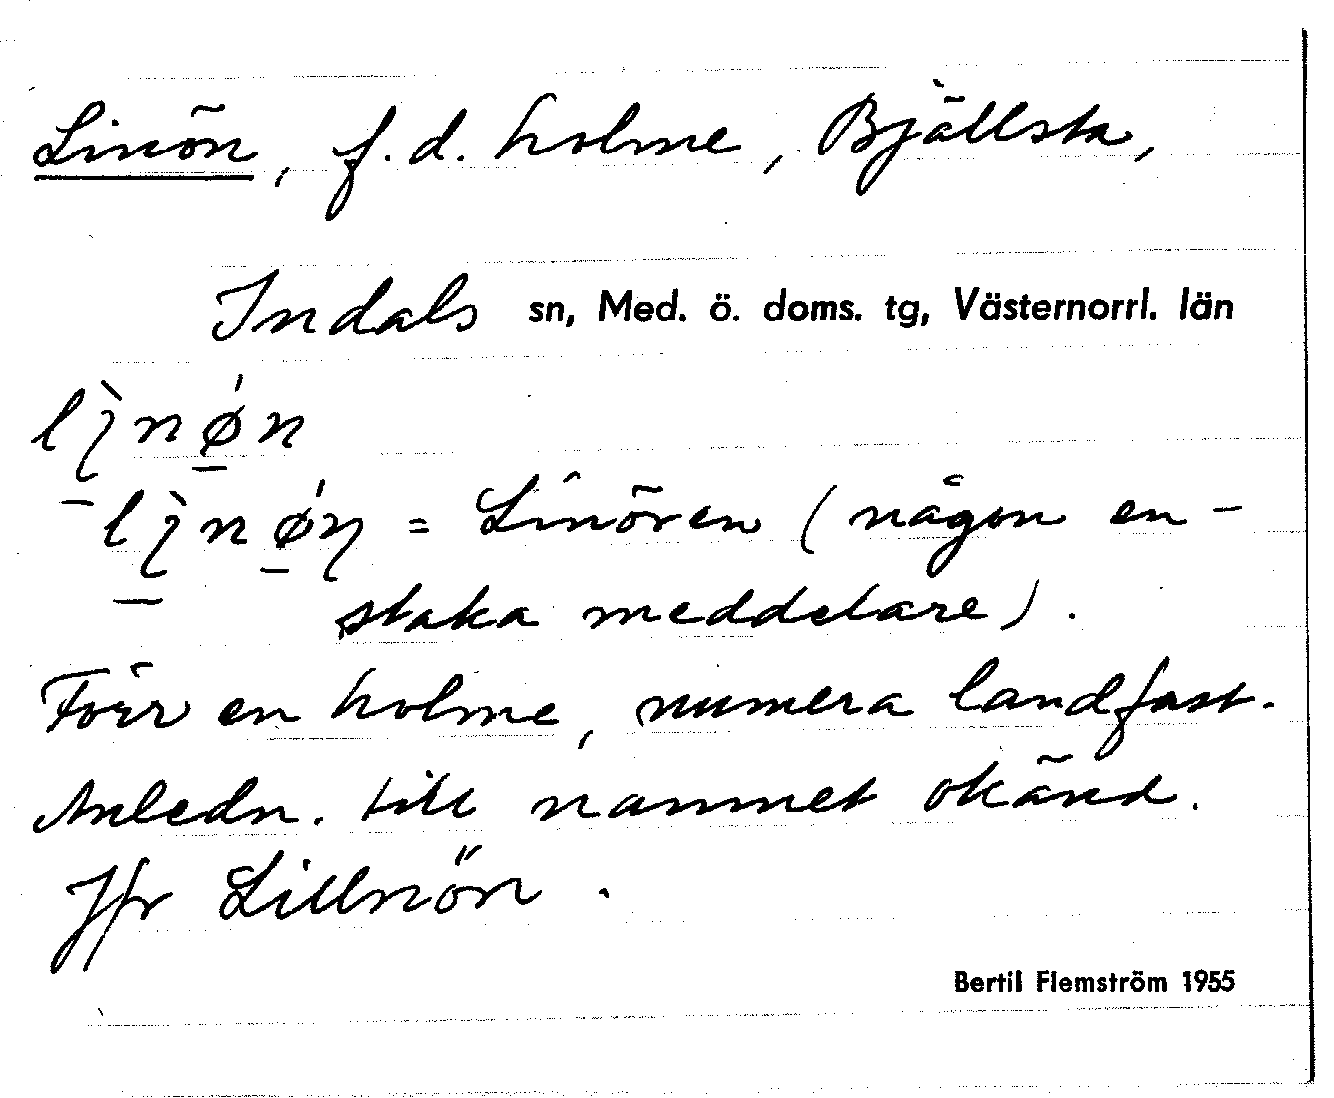 Linön, f.d. holme, Bjällsta,
Indals sn, Med. ö. doms. tg, Västernorrl. län
lìnǿn
lìnǿn = Linören (någon en-
staka meddelare).
Förr en holme, numera landfast.
Anledn. till namnet okänd.
Jfr Lillnön.
Bertil Flemström 1955